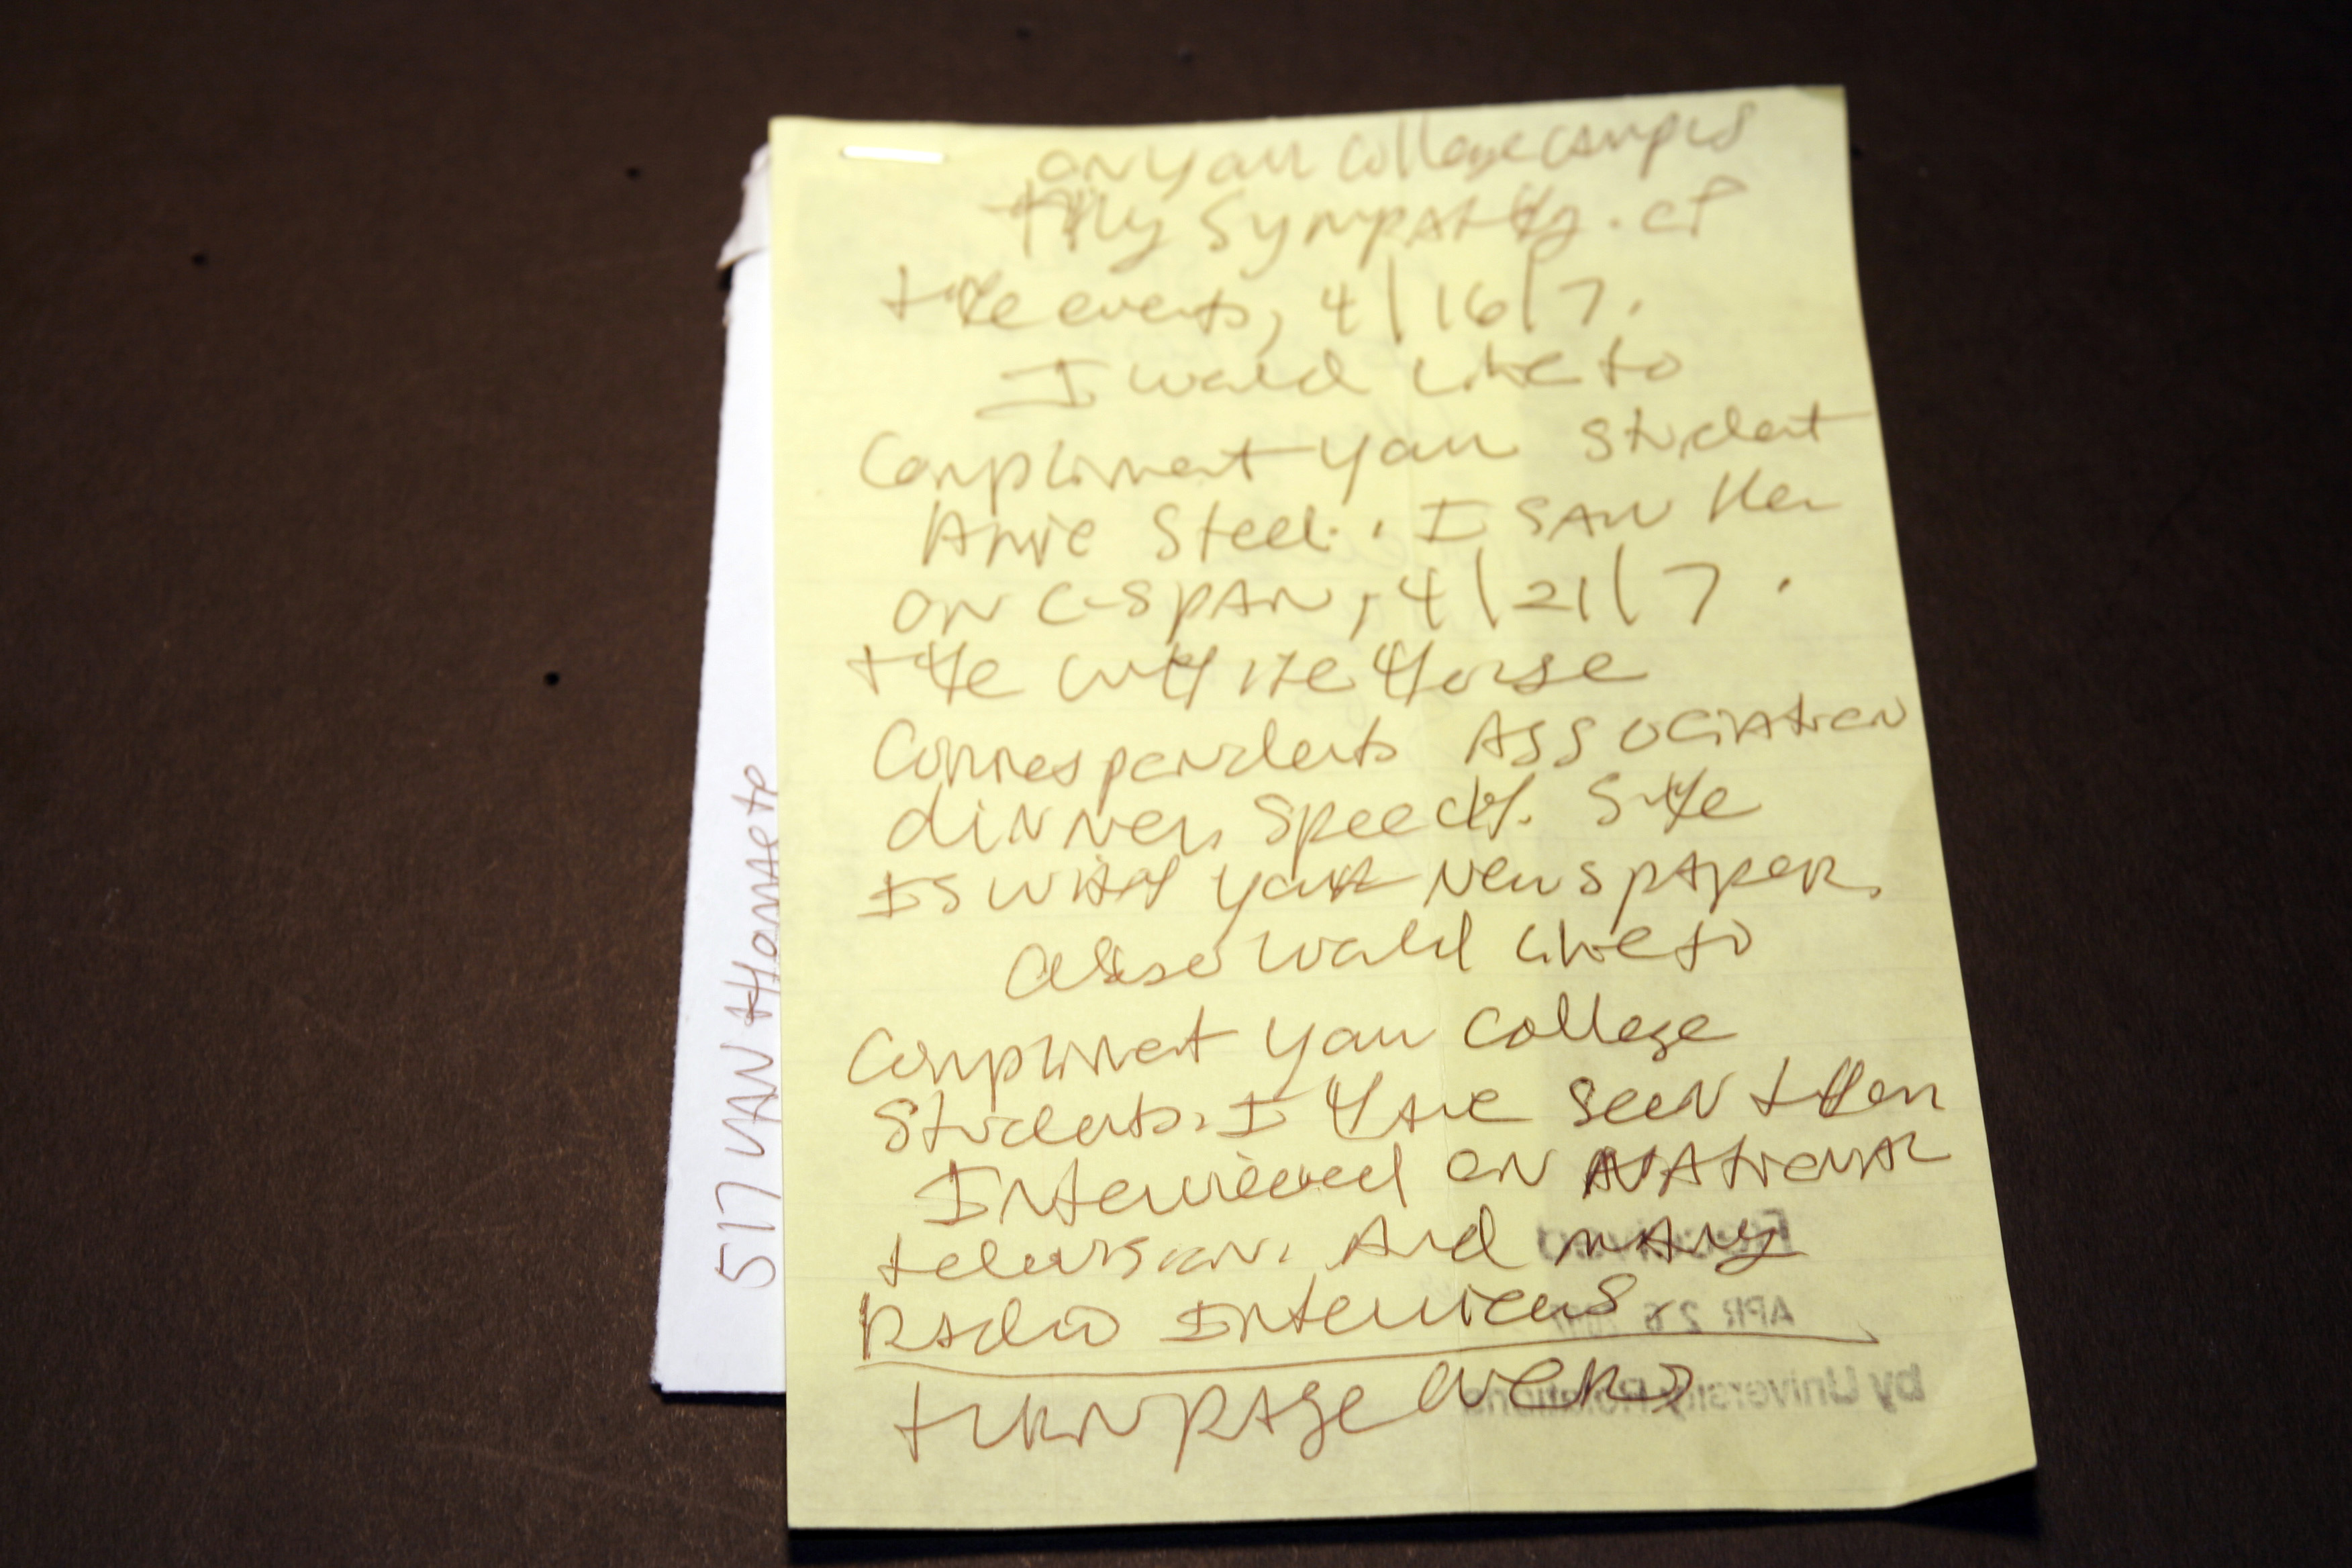 on your college campus
My sympathy. of
the events, 4/16/7.
I would like to
Compliment your student
Amie Steel. I saw her
on C-SPAN, 4/21/7.
the White House
Correspondents Association
dinner, speech. She
Is what your Newspaper.
also would like to
Compliment your college
Students. I have seen them
Interviewed on National
television. And many
Radio Interviews.
turn page over
517 VAN
Received
APR 26
by University Relations